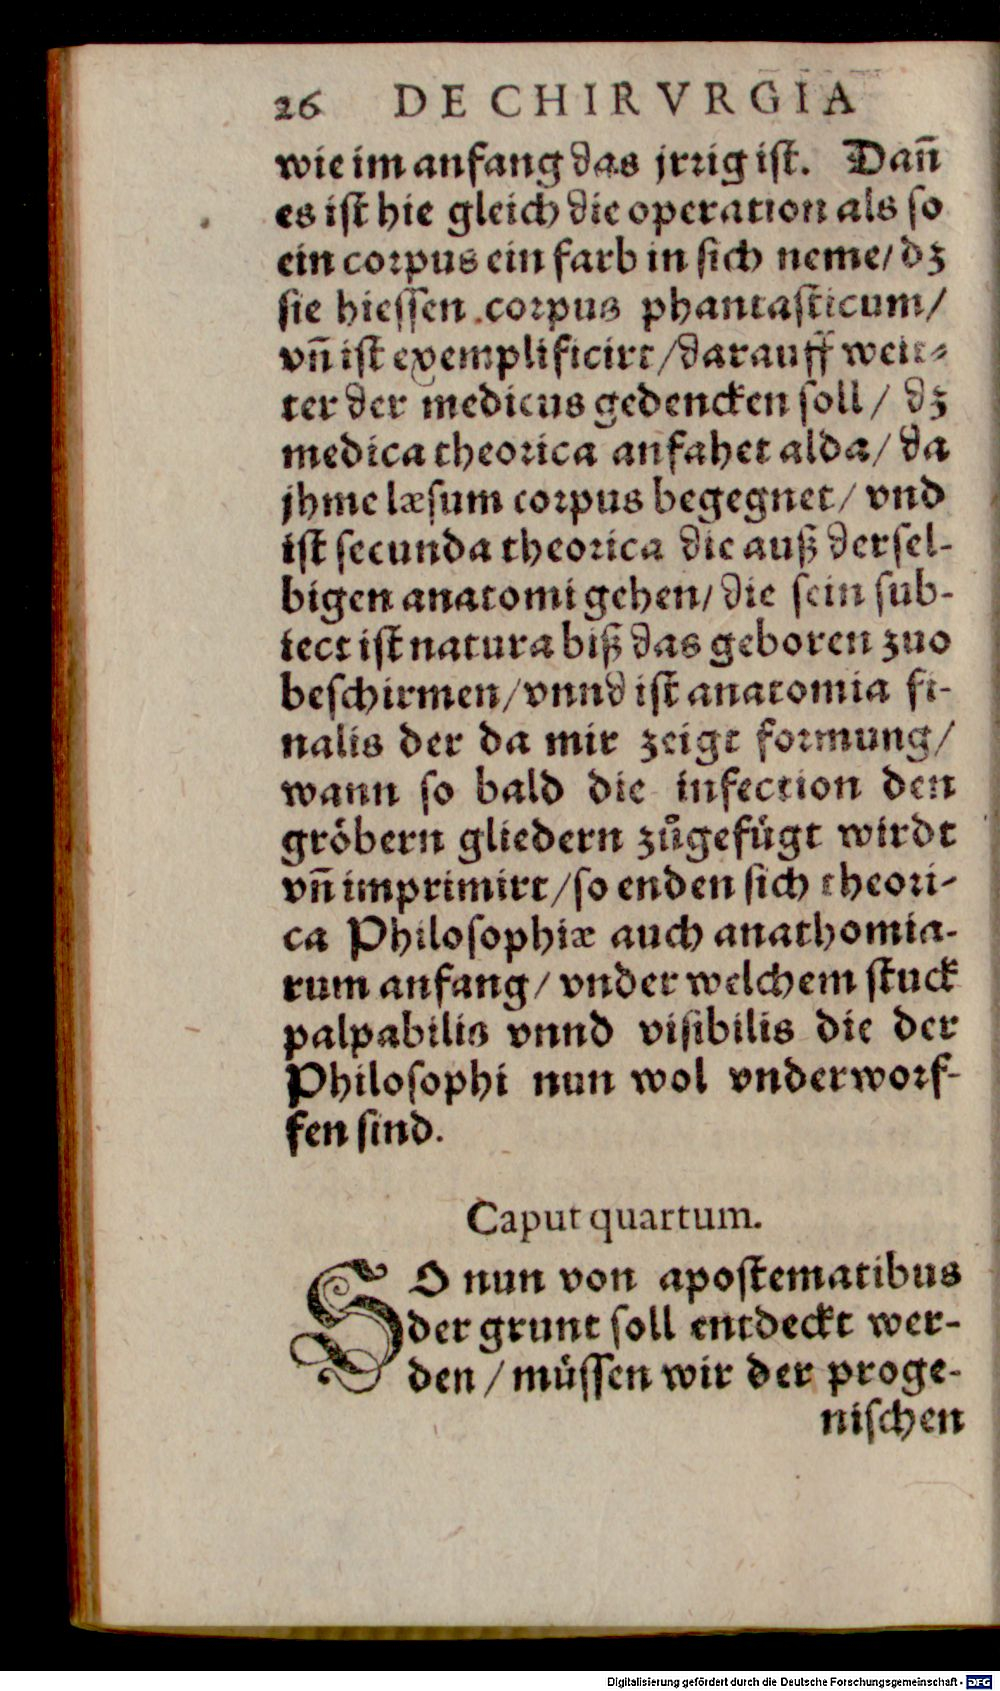 26 DE CHIRVRGIA
wie im anfang das jrrig ist. Dañ
es ist hie gleich die operation als so
ein corpus ein farb in sich neme/ dz
sie hiessen corpus phantasticum/
vñ ist exemplificirt/ darauff weit-
ter der medicus gedencken soll/ dz
medica theorica anfahet alda/ da
jhme læsum corpus begegnet/ vnd
ist secunda theorica die auß dersel-
bigen anatomi gehen/ die sein sub-
iect ist natura biß das geboren zuo
beschirmen/ vnnd ist anatomia fi-
nalis der da mir zeigt formung/
wann so bald die infection den
gröbern gliedern zůgefügt wirdt
vñ imprimirt/ so enden sich theori-
ca Philosophiæ auch anathomia-
rum anfang/ vnder welchem stuck
palpabilis vnnd visibilis die der
Philosophi nun wol vnderworf-
fen sind.
Caput quartum.
SO nun von apostematibus
der grunt soll entdeckt wer-
den/ müssen wir der proge-
nischen
Digitalisierung gefördert durch die Deutsche Forschungsgemeinschaft - DFG